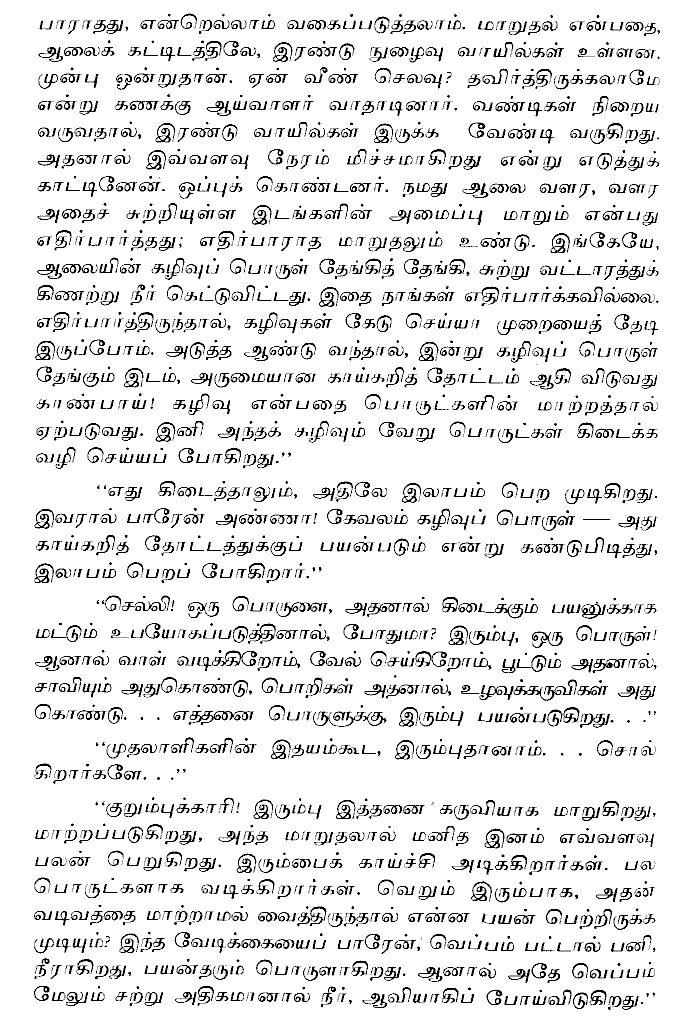 பாராதது, என்றெல்லாம் வகைப்படுத்தலாம். மாறுதல் என்பதை,
ஆலைக் கட்டிடத்திலே, இரண்டு நுழைவு வாயில்கள் உள்ளன.
முன்பு ஒன்றுதான். ஏன் வீண் செலவு? தவிர்த்திருக்கலாமே
என்று கணக்கு ஆய்வாளர் வாதாடினார். வண்டிகள் நிறைய
வருவதால், இரண்டு வாயில்கள் இருக்க வேண்டி வருகிறது.
அதனால் இவ்வளவு நேரம் மிச்சமாகிறது என்று எடுத்துக்
காட்டினேன். ஒப்புக் கொண்டனர். நமது ஆலை வளர, வளர
அதைச் சுற்றியுள்ள இடங்களின் அமைப்பு மாறும் என்பது
எதிர்பார்த்தது; எதிர்பாராத மாறுதலும் உண்டு. இங்கேயே,
ஆலையின் கழிவுப் பொருள் தேங்கித் தேங்கி, சுற்று வட்டாரத்துக்
கிணற்று நீர் கெட்டுவிட்டது. இதை நாங்கள் எதிர்பார்க்கவில்லை.
எதிர்பார்த்திருந்தால், கழிவுகள் கேடு செய்யா முறையைத் தேடி
இருப்போம். அடுத்த ஆண்டு வந்தால், இன்று கழிவுப் பொருள்
தேங்கும் இடம், அருமையான காய்கறித் தோட்டம் ஆகி விடுவது
காண்பாய்! கழிவு என்பதை பொருட்களின் மாற்றத்தால்
ஏற்படுவது. இனி அந்தக் கழிவும் வேறு பொருட்கள் கிடைக்க
வழி செய்யப் போகிறது.’’
‘‘எது கிடைத்தாலும், அதிலே இலாபம் பெற முடிகிறது.
இவரால் பாரேன் அண்ணா! கேவலம் கழிவுப் பொருள் — அது
காய்கறித் தோட்டத்துக்குப் பயன்படும் என்று கண்டுபிடித்து,
இலாபம் பெறப் போகிறார்.’’
‘‘செல்லி! ஒரு பொருளை, அதனால் கிடைக்கும் பயனுக்காக
மட்டும் உபயோகப்படுத்தினால், போதுமா? இரும்பு, ஒரு பொருள்!
ஆனால் வாள் வடிக்கிறோம், வேல் செய்கிறோம், பூட்டும் அதனால்,
சாவியும் அதுகொண்டு, பொறிகள் அதனால், உழவுக்கருவிகள் அது
கொண்டு. . . எத்தனை பொருளுக்கு, இரும்பு பயன்படுகிறது. . .’’
‘‘முதலாளிகளின் இதயம்கூட, இரும்புதானாம். . . சொல்
கிறார்களே. . .’’
‘‘குறும்புக்காரி! இரும்பு இத்தனை கருவியாக மாறுகிறது,
மாற்றப்படுகிறது, அந்த மாறுதலால் மனித இனம் எவ்வளவு
பலன் பெறுகிறது. இரும்பைக் காய்ச்சி அடிக்கிறார்கள். பல
பொருட்களாக வடிக்கிறார்கள். வெறும் இரும்பாக, அதன்
வடிவத்தை மாற்றாமல் வைத்திருந்தால் என்ன பயன் பெற்றிருக்க
முடியும்? இந்த வேடிக்கையைப் பாரேன், வெப்பம் பட்டால் பனி,
நீராகிறது, பயன்தரும் பொருளாகிறது. ஆனால் அதே வெப்பம்
மேலும் சற்று அதிகமானால் நீர், ஆவியாகிப் போய்விடுகிறது.’’